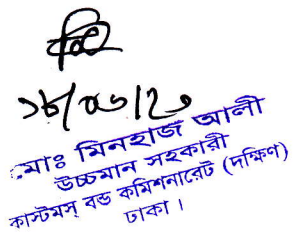 মোঃ মিনহাজ আলী
উচ্চমান সহকারী
কাস্টমস্ বন্ড কমিশনারেট (দক্ষিণ)
ঢাকা ।